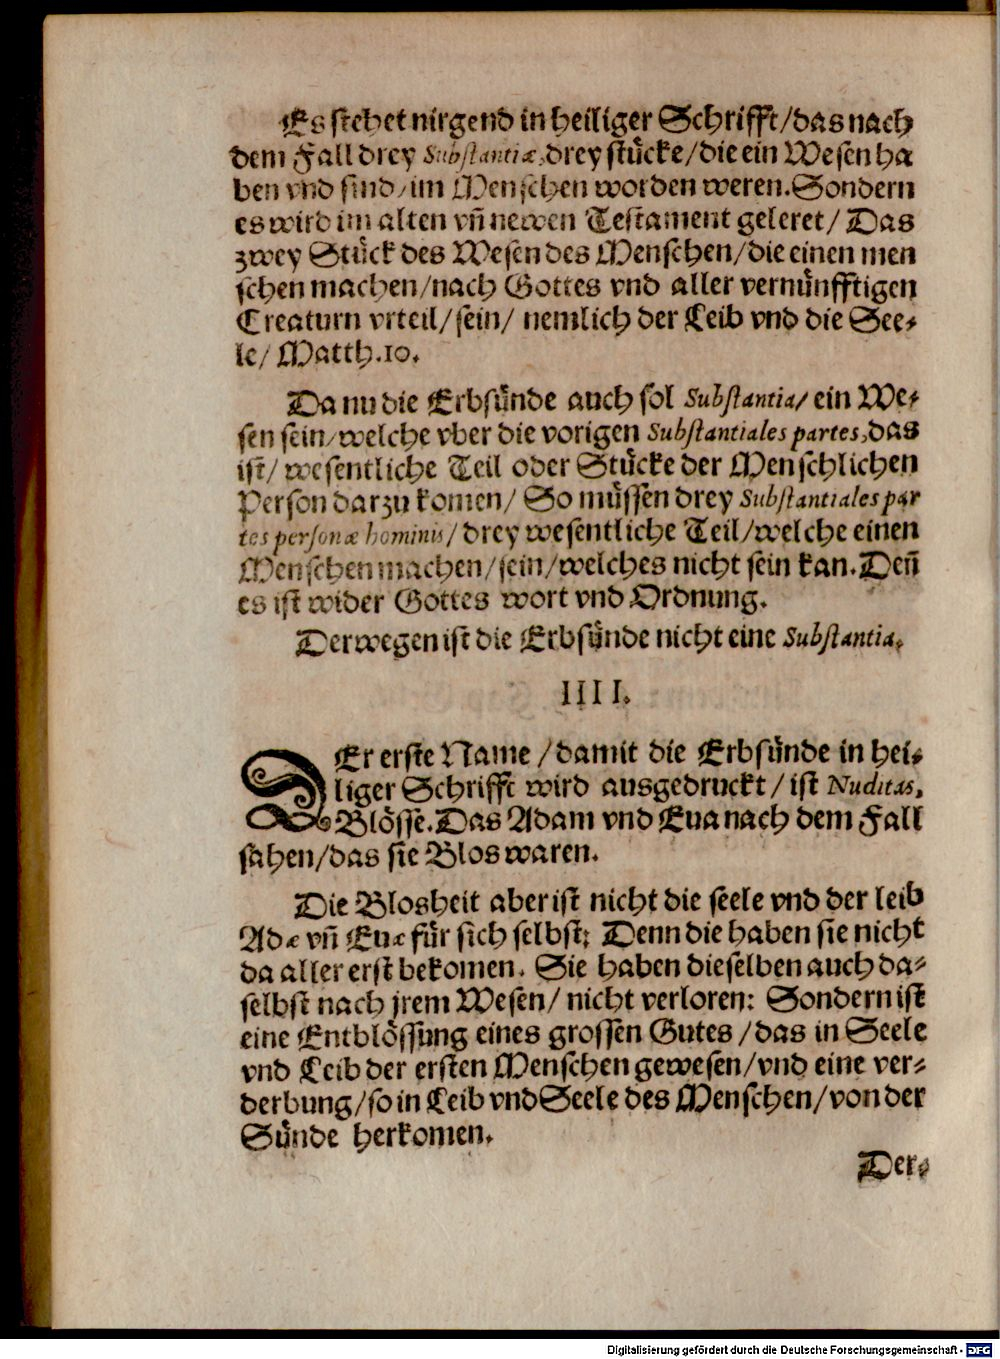 Es stehet nirgend in heiliger Schrifft/das nach
dem Fall drey Substantiæ, drey stücke/die ein Wesen ha
ben vnd sind/im Menschen worden weren. Sondern
es wird im alten vn̄ newen Testament geleret/ Das
zwey Stück des Wesen des Menschen/die einen men
schen machen/nach Gottes vnd aller vernünfftigen
Creaturn vrteil/sein/ nemlich der Leib vnd die See-
le/ Matth.10.
Da nu die Erbsünde auch sol Substantia/ ein We-
sen sein/welche vber die vorigen Substantiales partes, das
ist/ wesentliche Teil oder Stücke der Menschlichen
Person darzu komen/ So müssen drey Substantiales par
tes personæ hominis/ drey wesentliche Teil/welche einen
Menschen machen/sein/welches nicht sein kan. Den̄
es ist wider Gottes wort vnd Ordnung.
Derwegen ist die Erbsünde nicht eine Substantia.
IIII.
DEr erste Name /damit die Erbsünde in hei-
liger Schrifft wird ausgedruckt/ ist Nuditas,
Blösse. Das Adam vnd Eua nach dem Fall
sahen/das sie Blos waren.
Die Blosheit aber ist nicht die seele vnd der leib
Adæ vn̄ Euæ für sich selbst: Denn die haben sie nicht
da aller erst bekomen. Sie haben dieselben auch da-
selbst nach jrem Wesen/ nicht verloren: Sondern ist
eine Entblössung eines grossen Gutes /das in Seele
vnd Leib der ersten Menschen gewesen/vnd eine ver-
derbung/so in Leib vnd Seele des Menschen/von der
Sünde herkomen.
Der-
Digitalisierung gefördert durch die Deutsche Forschungsgemeinschaft - DFG